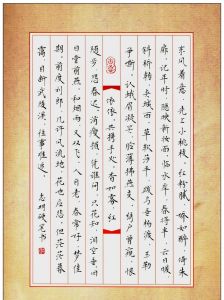 东风着意,先上小桃枝。红粉腻,娇如醉,倚朱
扉。记年时,隐映新妆面,临水岸,春将半,云日暖,
斜桥转,夹城西。草软莎平,跋马垂杨渡,玉勒
争嘶。认蛾眉凝笑,脸薄拂燕支。绣户曾窥,恨
依依。共携手处,香如雾,红
随步,怨春迟。消瘦损,凭谁问?只花知,泪空垂。旧
日堂前燕,和烟雨,又双飞。人自老,春常好,梦佳
期。前度刘郎,几许风流地,花也应悲。但茫茫暮
霭,目断武陵溪,往事难追。 志明硬笔书